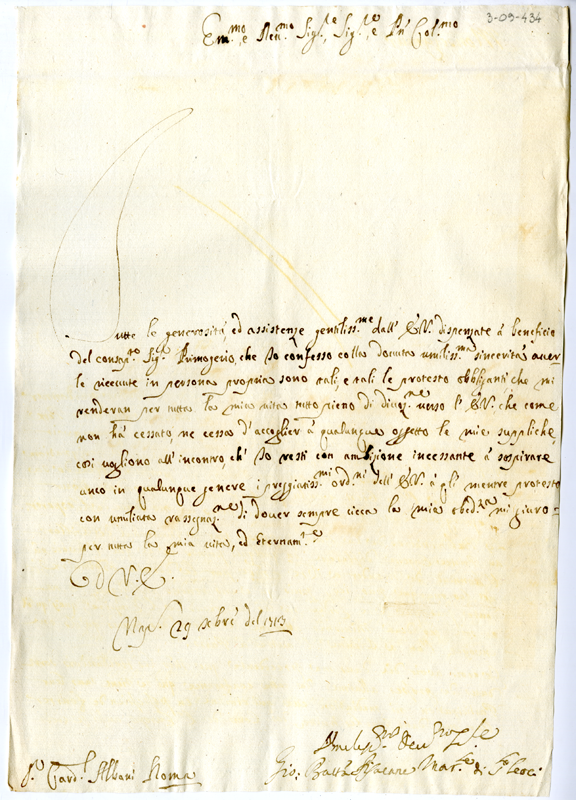 3-09-434
Em.mo, e Reu.mo Sig.re, Sig.re, e Pñ Col.mo
Tutte le generosità, ed assistenze gentiliss.me dall' E.V. dispenzate à beneficio
del consap.to Sig.r Primogenio, che Io confesso colla douuta umiliss.ma sincerità auer-
le riceuute in persona propria sono tali, e tali le protesto obbliganti che mi
renderan per tutta la mia uita tutto pieno di diuoz.ne uerso l' E.V. che come
non hà cessato, ne cessa d' accoglier à qualunque oggetto le mie suppliche,
così uogliono all' incontro, ch' Io resti con ambizione incessante à sospirare
anco in qualunque genere i preggiatiss.mi ord.ni dell' E.V. à q̃li mentre protesto
con umiliata rassegnaz.ne di douer sempre cieca la mia obed.za mi giuro-
per tutta la mia uita, ed Eternam.te
D V. E.
Nap. 29 xbre del 1713
S.r Card.l Albani Roma
Gio: Batta Mar.se di